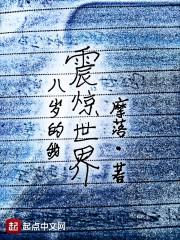 八岁的
震惊世界
摩落·著
起点中文网